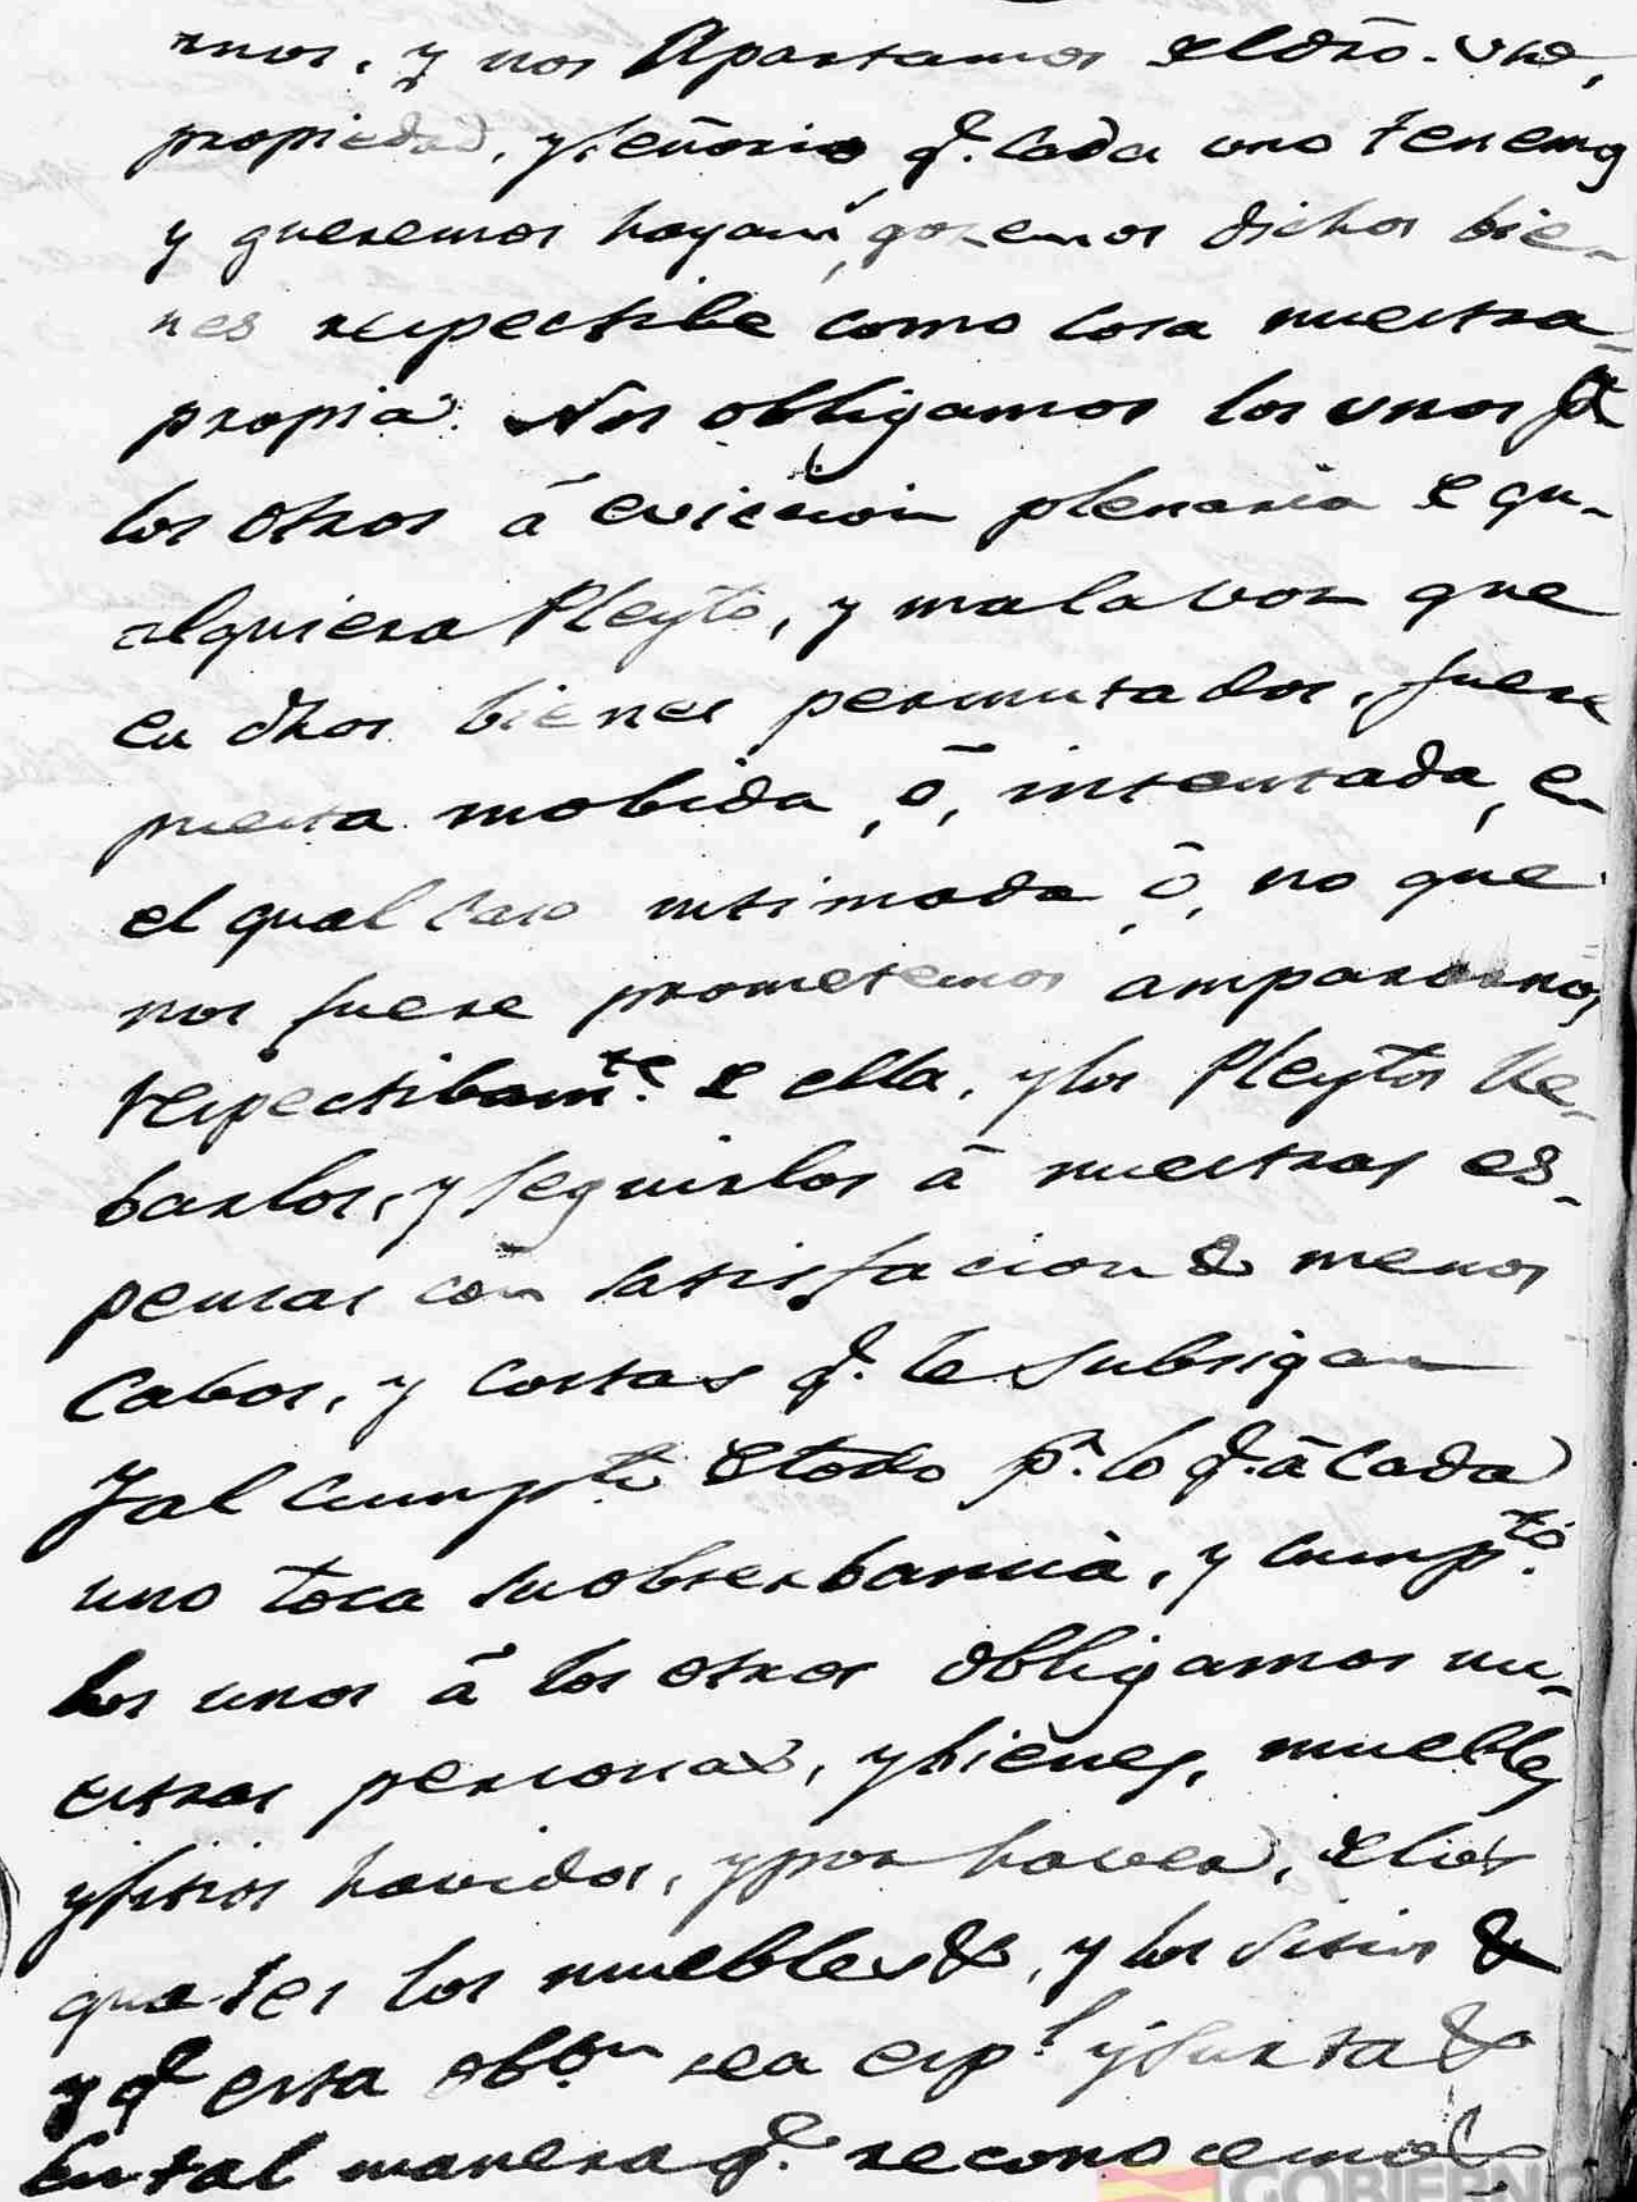 mos, y nos Apartamos del dro. uso,
propiedad, y señorio q.e cada uno tenemos
y queremos hayam, gozemos dichos bie-
nes respectibe como cosa nuestra
propia. Nos obligamos los unos
los otros á eviccion plenaria de qu-
alquiera Pleyto, y mala voz que
en dhos bienes permutados, fuere
puesta mobida, ó, intentada, en
el qual caso intimada, ó, no que
nos fuere prometemos ampararnos
respectibam.te de ella, y los Pleytos lle-
barlos, y seguirlos á nuestras es-
pensas con satisfacion de menos
Cabos, y costas q.e se subsigan
Y al cumpto de todo p.r lo q.e á Cada
uno toca su obserbancia, y cump.to
los unos á los otros obligamos nu-
estras personas, y bienes, muebles
y sitios havidos, y por haver, de los
quales los muebles &, y los sitios &
y q.e esta obon sea esp.l y surta &
En tal manera q.e reconocemos
GOBIERNO